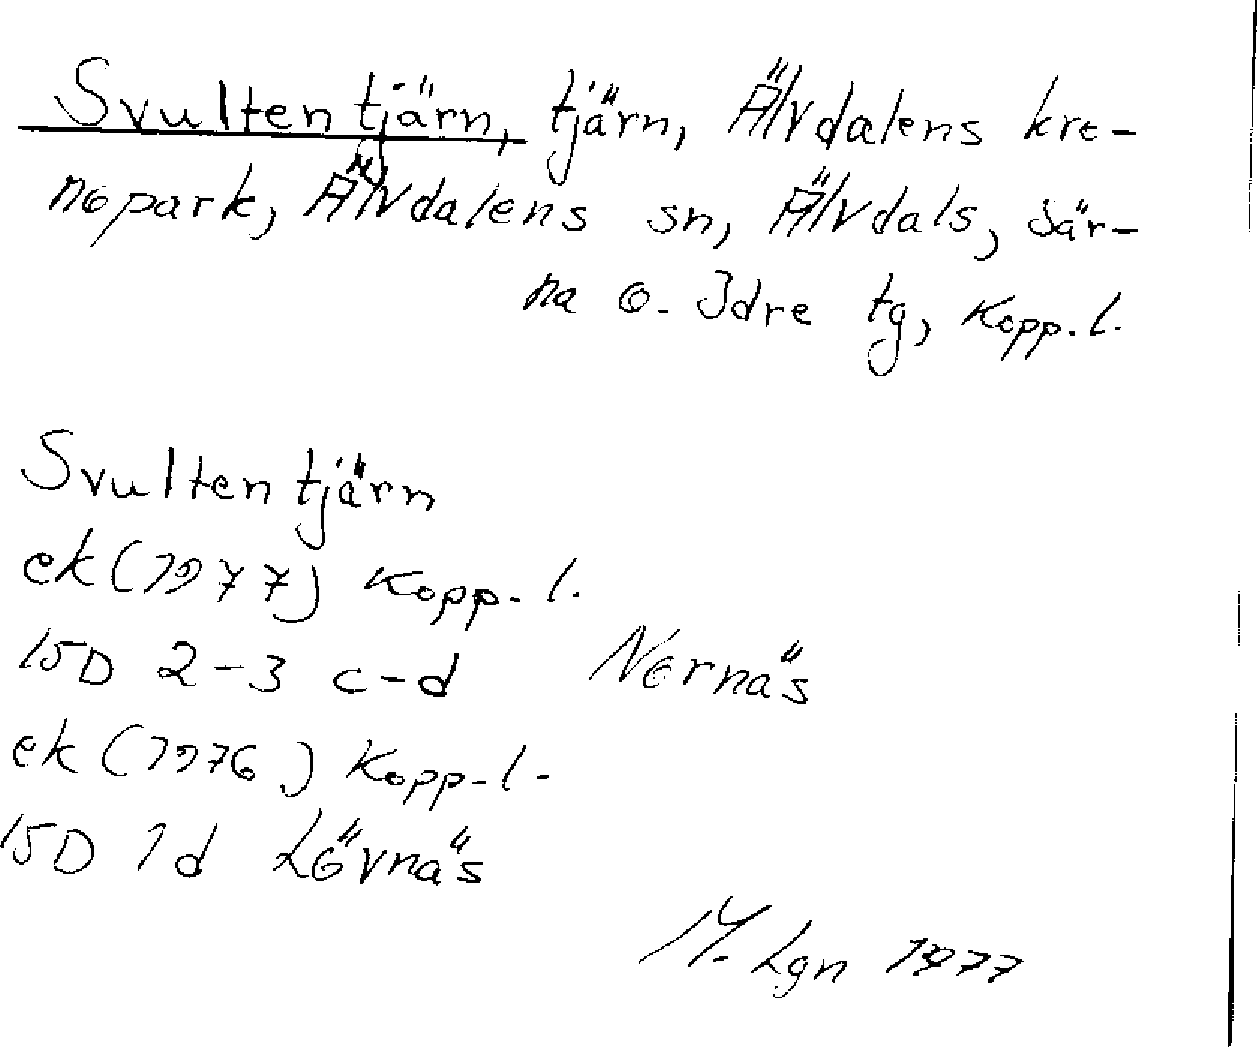 Svultentjärn, tjärn, Älvdalens kro-
nopark, Älvdalens sn, Älvdals, Sär-
na o. Idre tg, Kopp. l.
Svultentjärn
ek (1977) Kopp. l.
15D 2-3 c-d Nornäs
ek (1976) Kopp. l.
15D 1d Lövnäs
M. Lgn 1977